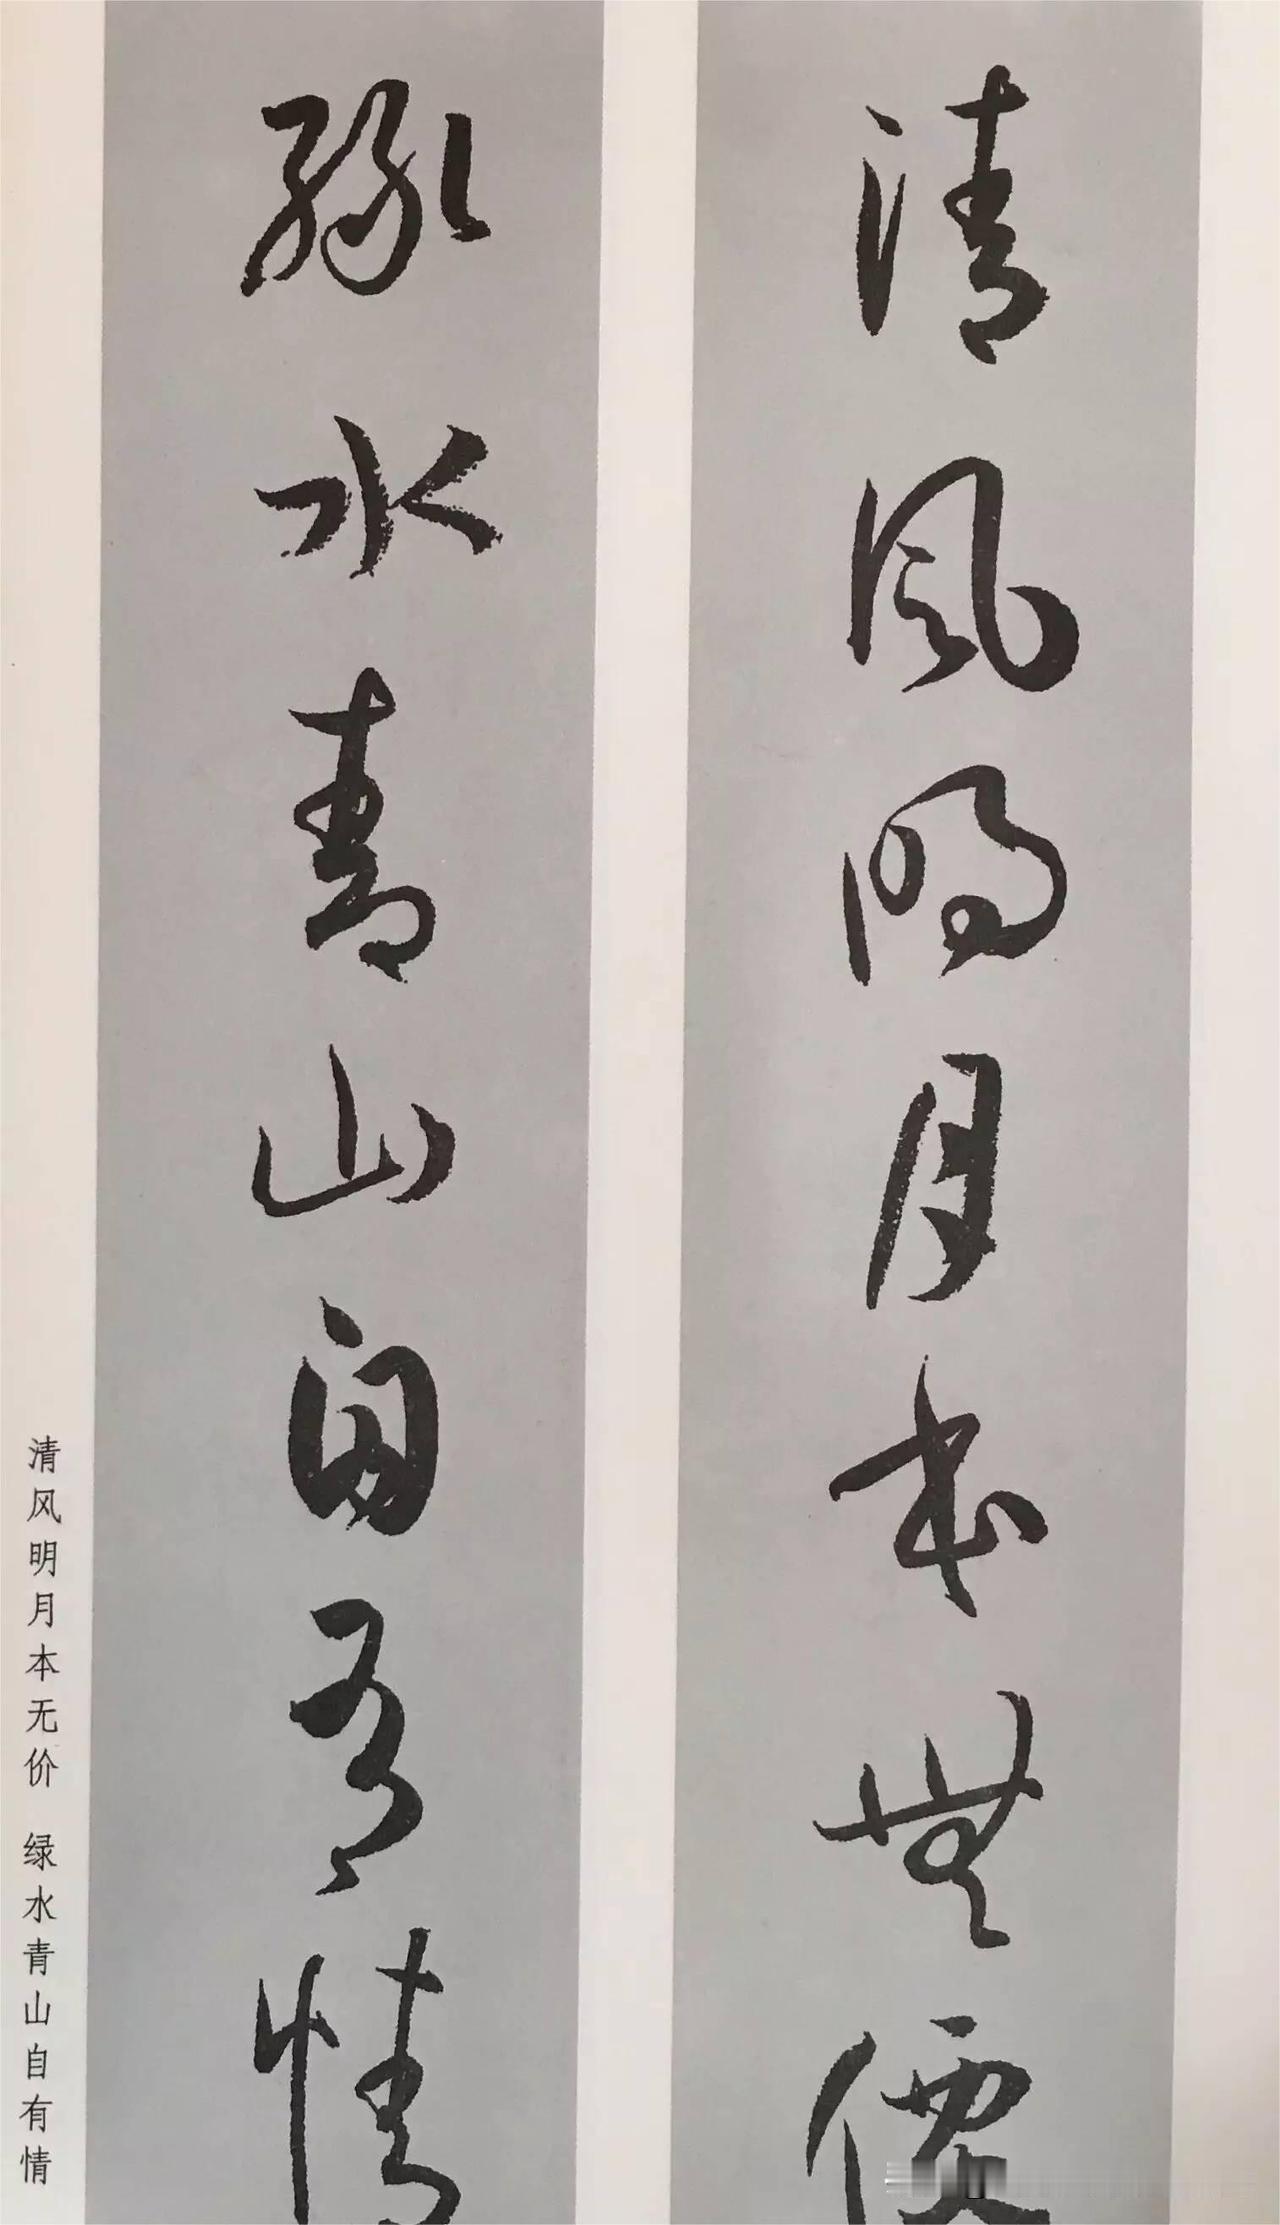 清風明月本無價
綠水青山自有情
清风明月本无价 绿水青山自有情